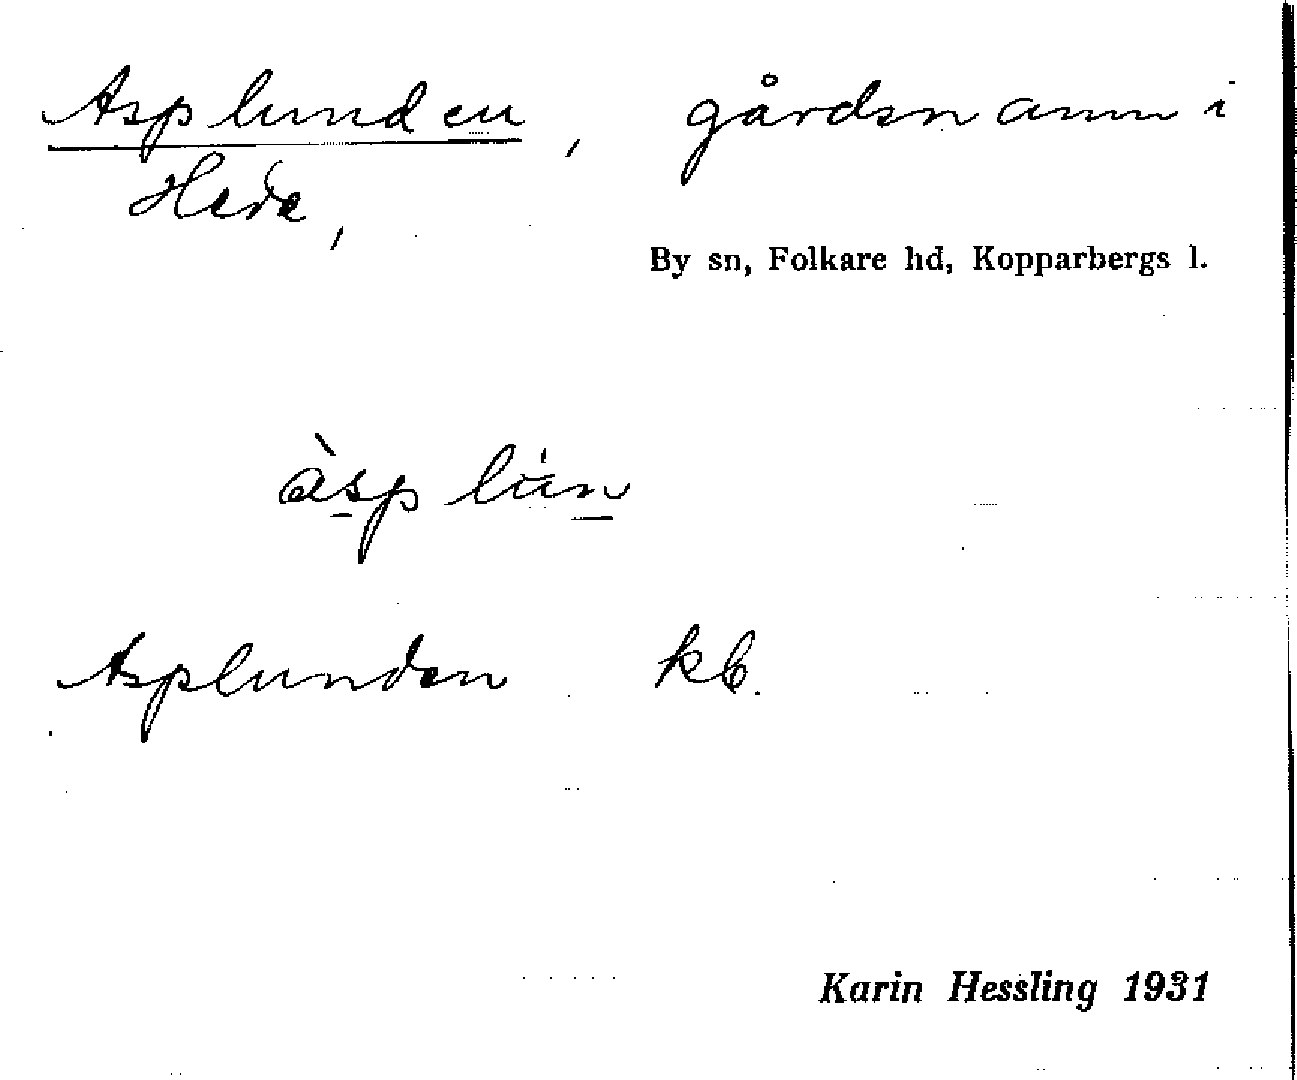 Asplunden, gårdsnamn i
Hede,
By sn, Folkare hd, Kopparbergs l.
àsplun
Asplunden kb.
Karin Hessling 1931